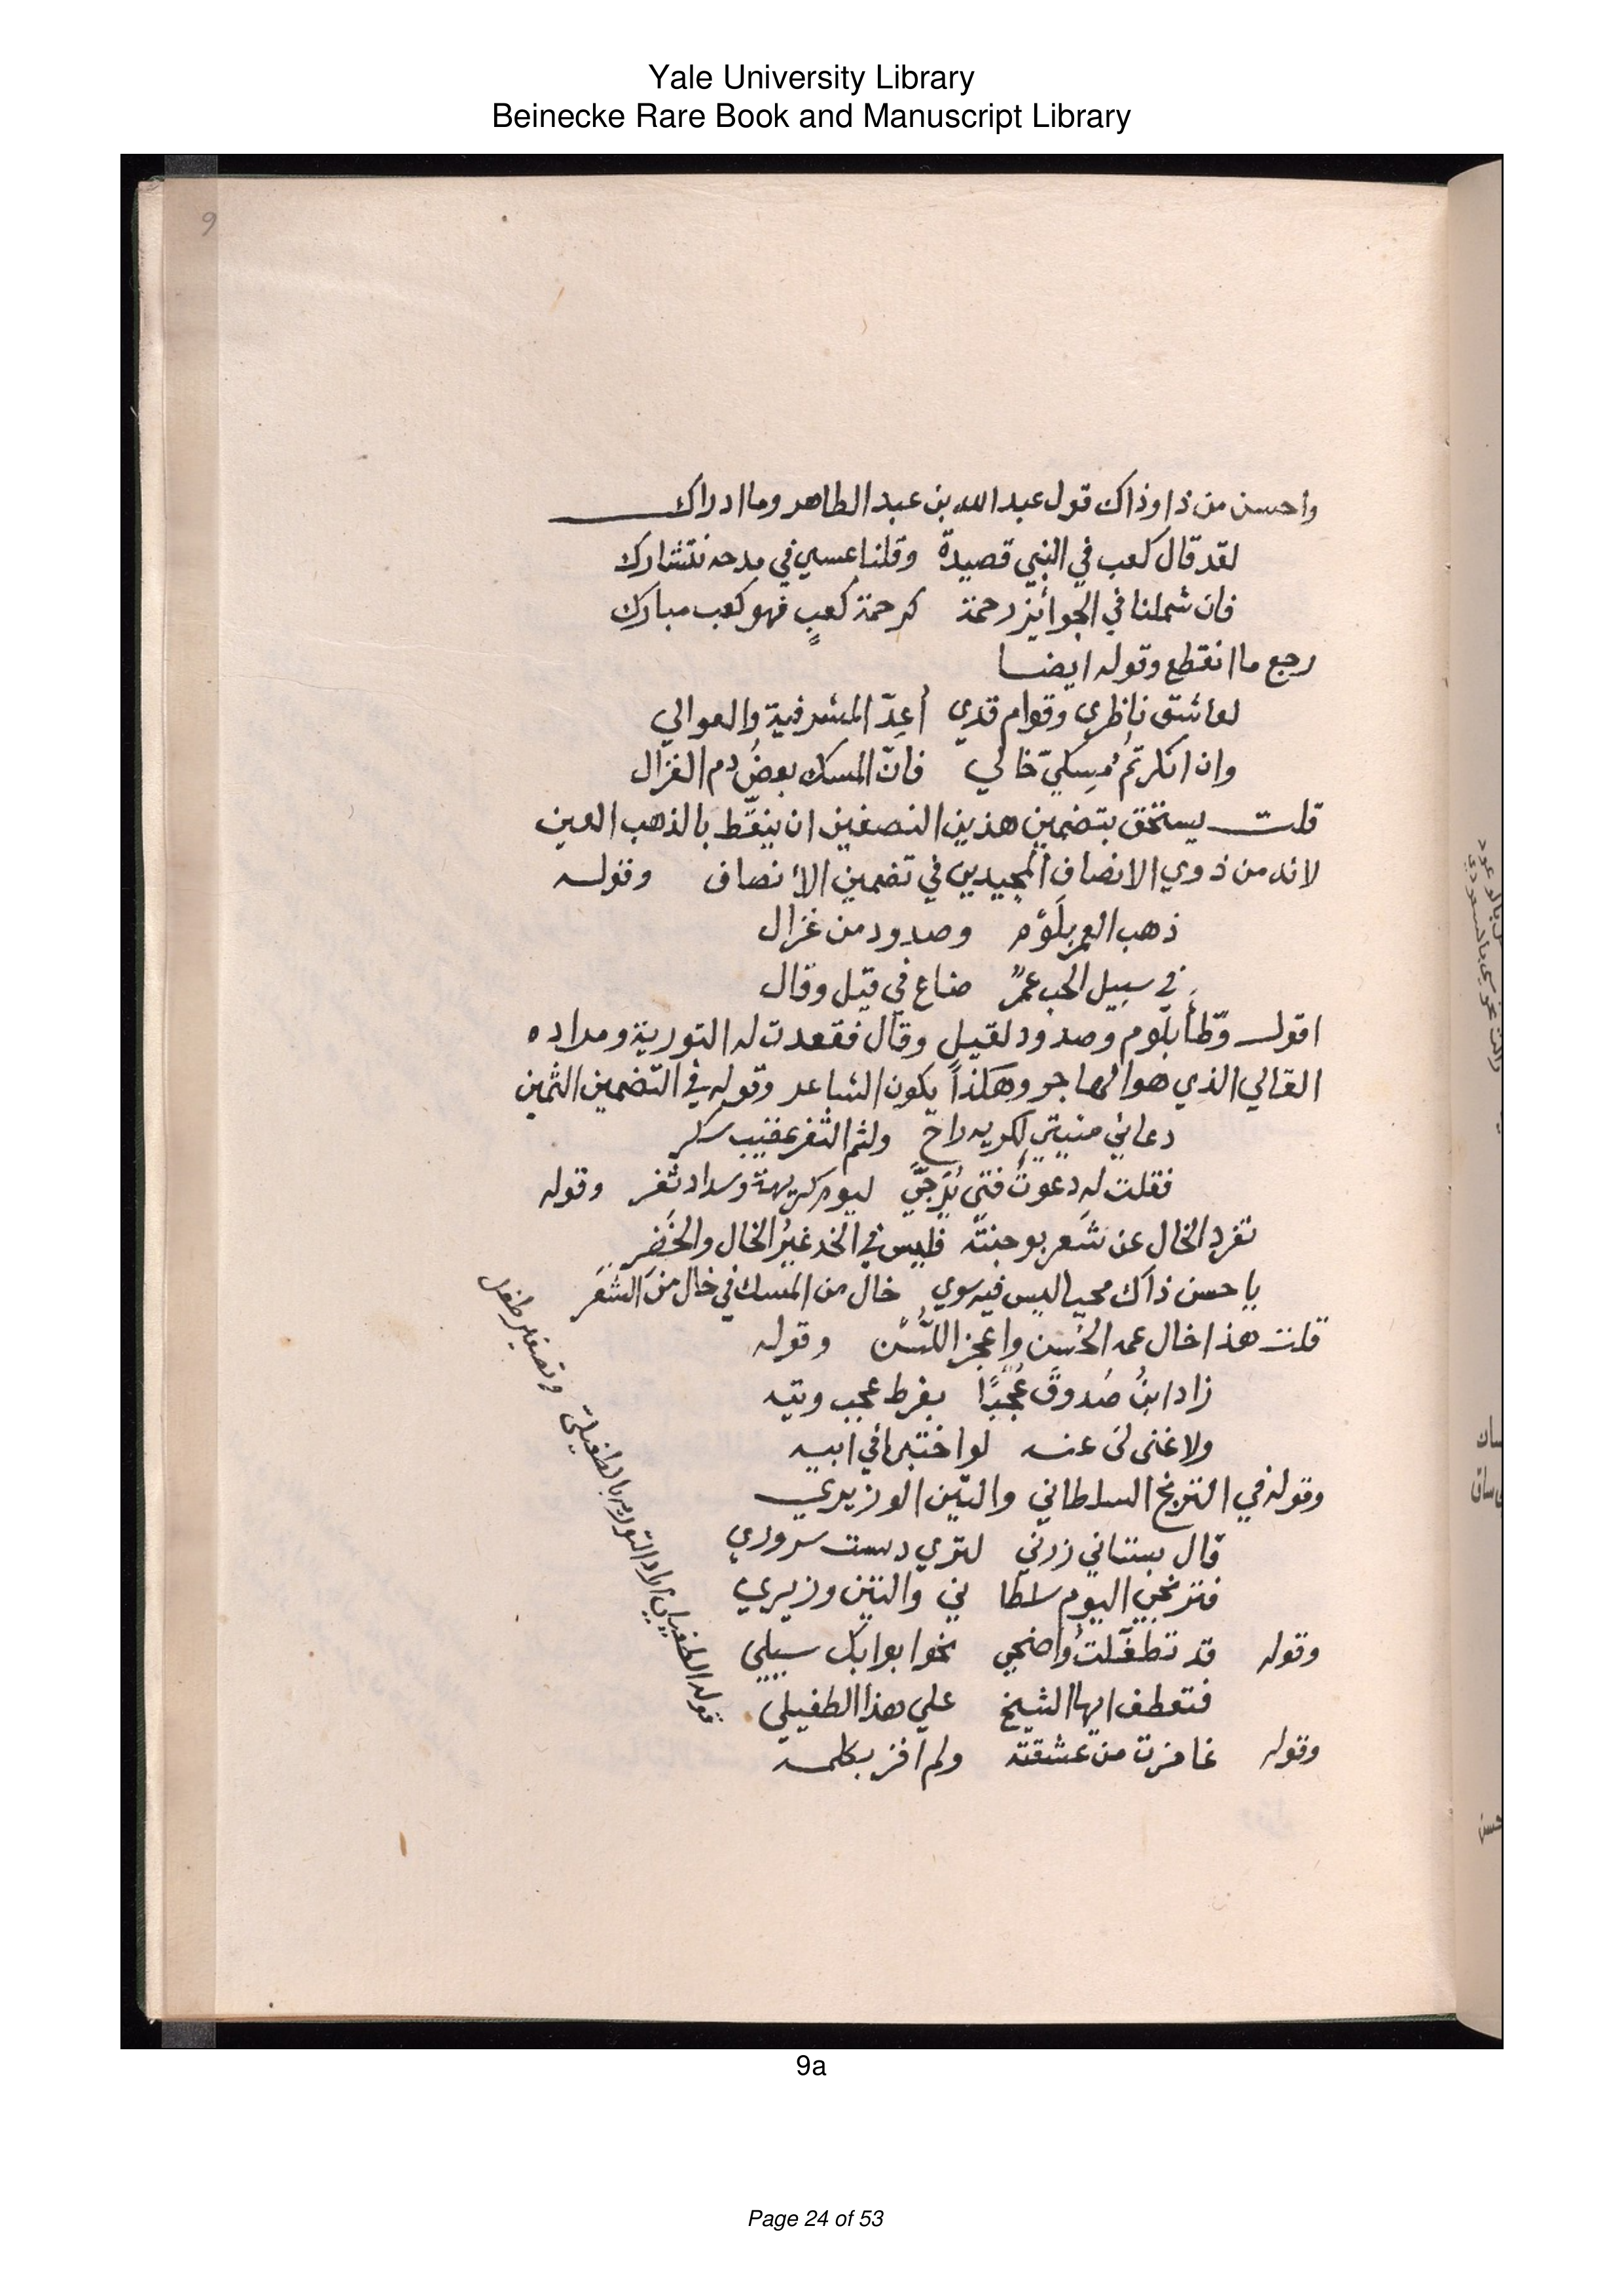 Yale University Library
Beinecke Rare Book and Manuscript Library
9
واحسن من ذا وذاك قول عبد الله بن عبد الطاهر وما ادراك
لقد قال كعب في النبي قصيدة وقلنا عسي في مدحه نتشارك
فان شملنا في الجوائيز رحمة كرحمة كعبٍ فهو كعب مبارك
رجع ما انقطع وقوله ايضا
لعاشق ناظري وقوام قدي أعِدّ المشرفية والعوالي
وان انكرتمُ مسكيّ خالي فانّ المسك بعضُ دم الغزال
قلت يستحق بتضمين هذين النصفين ان ينقّط بالذهب العين
لانه من ذوي الانصاف المجيدين في تضمين الأنصاف وقوله
ذهب العمر بلَوْم وصدود من غزال
في سبيل الحب عمرٌ ضاع في قيل وقال
اقول وطّأ بلوم وصدود لقيل وقال فقعدت له التورية ومراده
القالي الذي هو الهاجر وهكذا يكون الشاعر وقوله في التضمين الثمين
دعاني منيتي لكريه راح ولثم الثغر عقيب سكر
فقلت له دعوتُ فتى تُرَجّي ليوم كريهة وسداد ثغر وقوله
تفرد الخال عن شَعر بوجنته فليس في الخد غيرُ الخال والخَفَرِ
يا حسن ذاك محيا ليس فيه سوي خال من المسك في خال من الشعَر
قلت هذا خال عمه الحُسن واعجز اللُّسْن وقوله
زاد ابنُ صَدوق عُجْبًا بفرط عجب وتيه
ولا غنى لى عنه لو اختبرا في ابيه
وقوله في النرنج السلطاني والتين الوزيري
قال بستاني زرني لتري دست سروري
فنرنجي اليوم سلطا ني والتين وزيري
وقوله قد تطفّلتُ واضحي نحو ابوابك سبيلي
فتعطف ايها الشيخ علي هذا الطفيلي
وقوله غامزت من عشقته ولم افز بكلمه
قوله الطفيلي اراد التوريه بالطفيلي وتصغير طفل
9a
Page 24 of 53